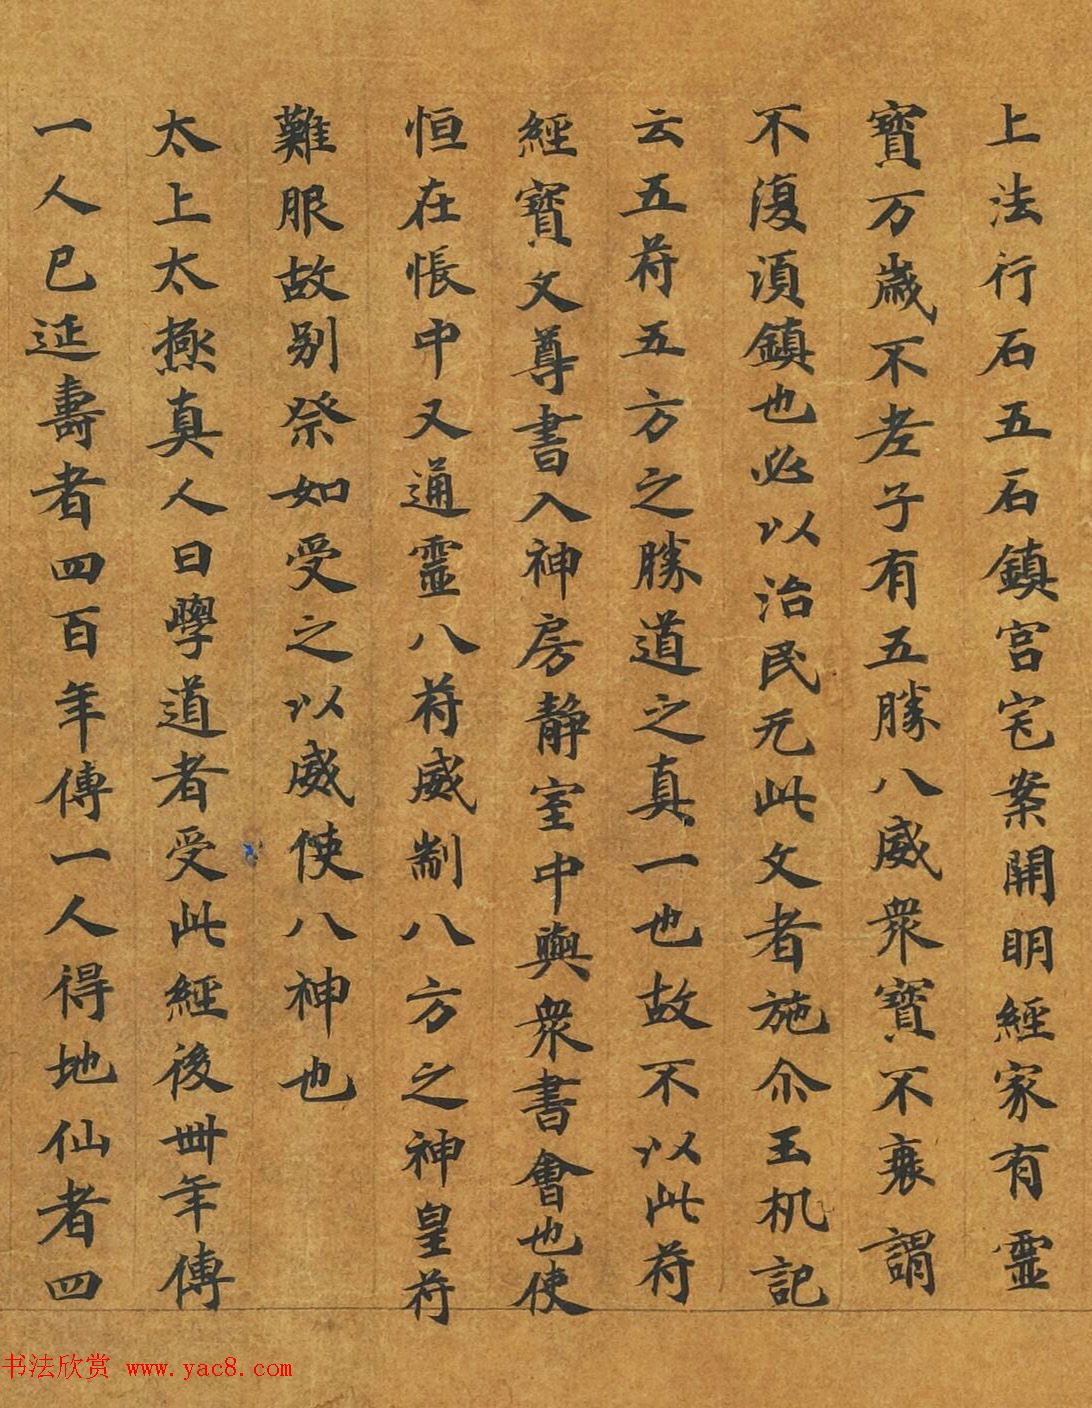 上法行石五石鎮宫宅案開明經家有靈
寶万歲不老子有五勝八威衆寶不衰謂
不復須鎮也必以治民无此文者施尒玉机記
云五符五方之勝道之真一也故不以此符
經寶文尊書入神房静室中與衆書會也使
恒在悵中又通靈八符威制八方之神皇符
難服故别祭如受之以威使八神也
太上太極真人曰學道者受此經後卌年傳
一人已延壽者四百年傳一人得地仙者四
书法欣赏 www.yac8.com